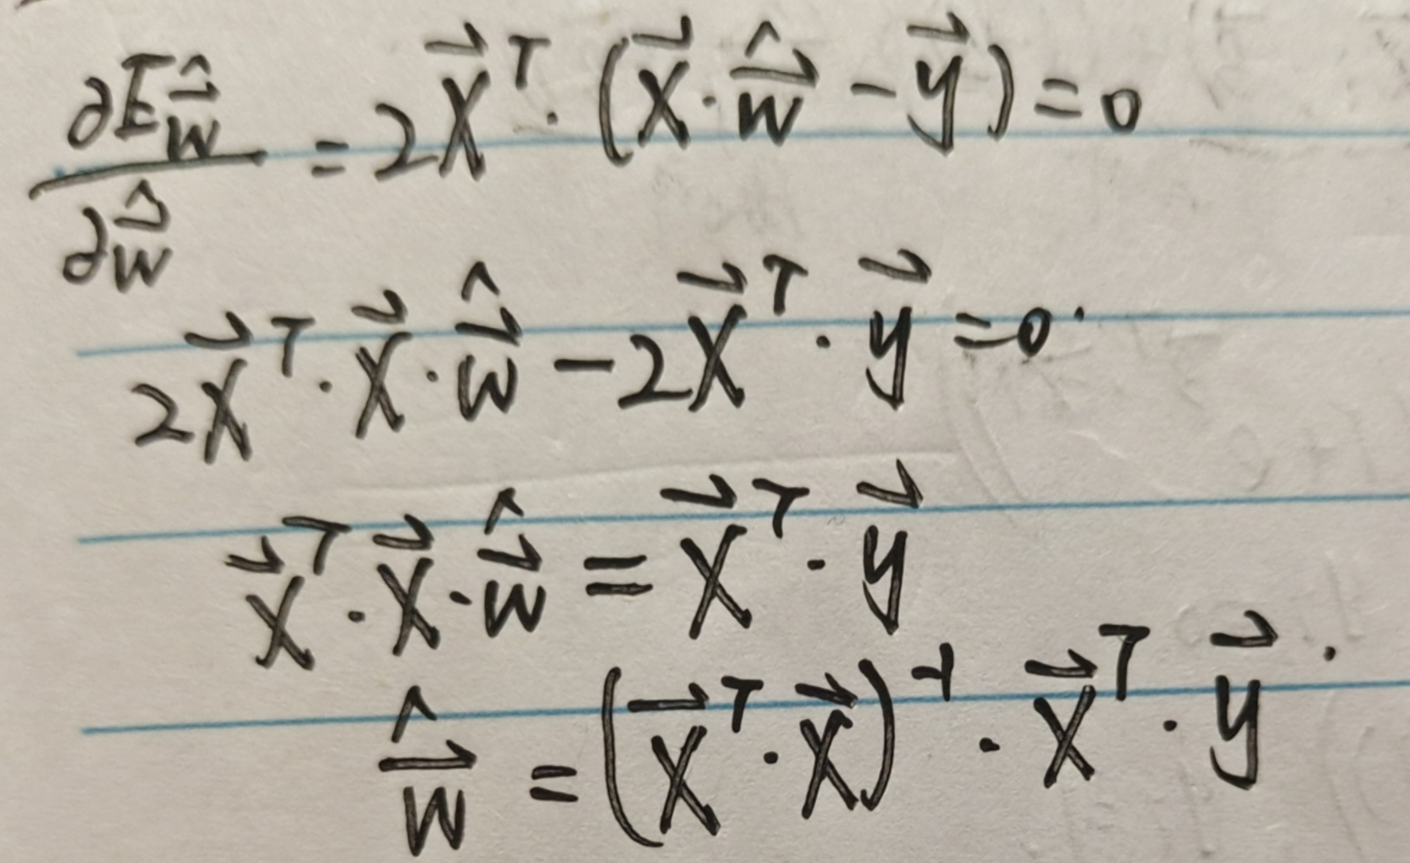 $\frac{\partial E_{\hat{\vec{w}}}}{\partial \hat{\vec{w}}} = 2\vec{X}^T \cdot (\vec{X} \cdot \hat{\vec{w}} - \vec{y}) = 0$
$2\vec{X}^T \cdot \vec{X} \cdot \hat{\vec{w}} - 2\vec{X}^T \cdot \vec{y} = 0$
$\vec{X}^T \cdot \vec{X} \cdot \hat{\vec{w}} = \vec{X}^T \cdot \vec{y}$
$\hat{\vec{w}} = (\vec{X}^T \cdot \vec{X})^{-1} \cdot \vec{X}^T \cdot \vec{y}.$